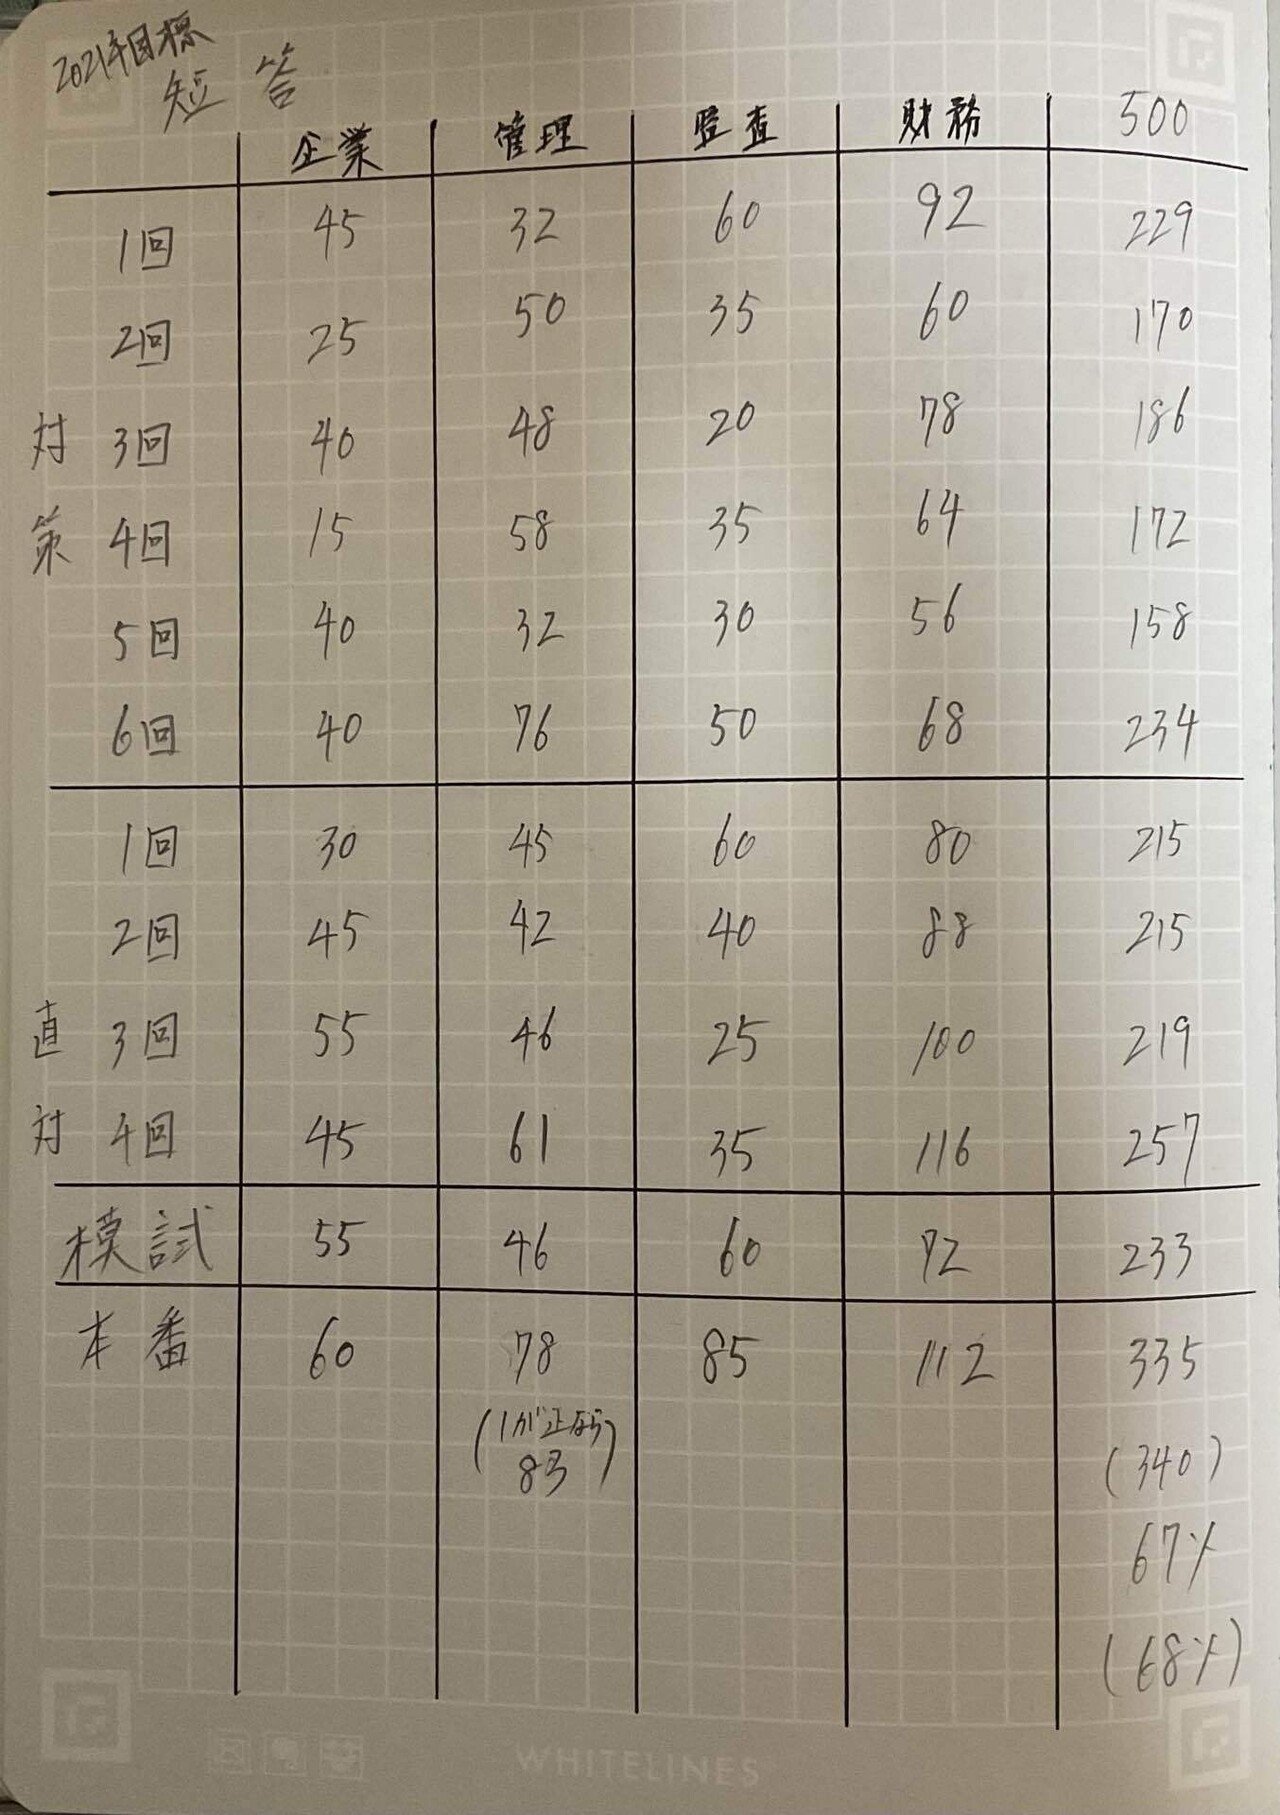 2021年目標
短答
企業 管理 監査 財務 500
1回 45 32 60 92 229
2回 25 50 35 60 170
対 3回 40 48 20 78 186
策 4回 15 58 35 64 172
5回 40 32 30 56 158
6回 40 76 50 68 234
1回 30 45 60 80 215
2回 45 42 40 88 215
直 3回 55 46 25 100 219
対 4回 45 61 35 116 257
模試 55 46 60 72 233
本番 60 78 85 112 335
(1が正なら 83) (340)
67%
(68%)
WHITELINES